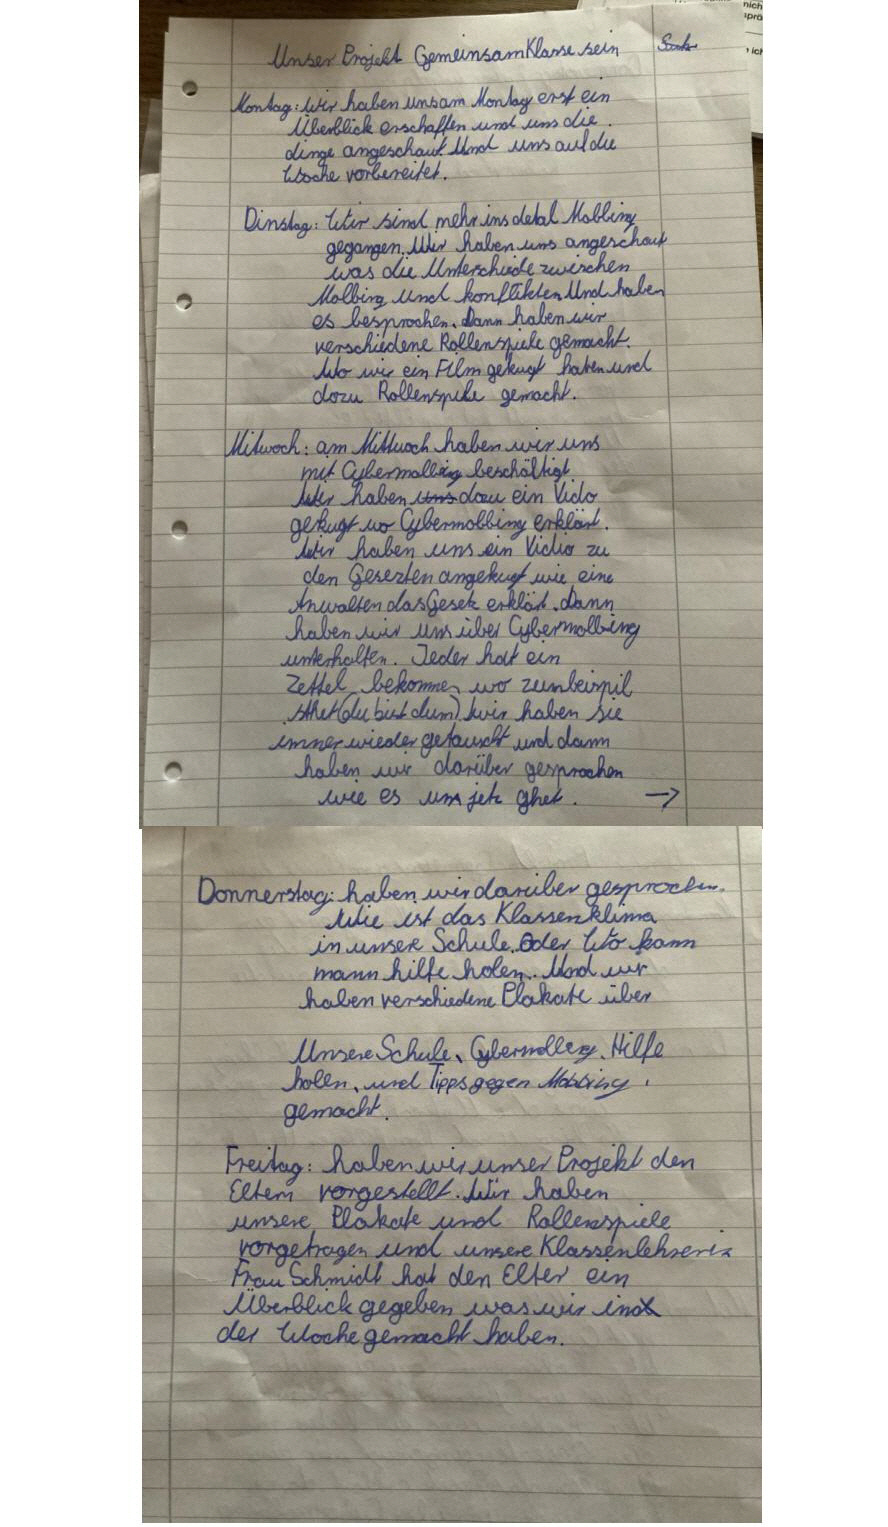 Unser Projekt Gemeinsam Klasse sein
Montag: wir haben uns am Montag erst ein
Überblick erschaffen und uns die
dinge angeschaut. Und uns auf die
Woche vorbereitet.
Dinstag: Wir sind mehr ins detal Mobbing
gegangen. Wir haben uns angeschaut
was die Unterschiede zwischen
Mobbing und konflikten. Und haben
es besprochen. Dann haben wir
verschiedene Rollenspiele gemacht.
Wo wir ein Film gekugt haben und
dozu Rollenspile gemacht.
Mitwoch: am Mittwoch haben wir uns
mit Cybermobbing beschäftigt
Wir haben uns dozu ein Vido
gekugt wo Cybermobbing erklärt.
Wir haben uns ein Vidio zu
den Gesezten angekugt wie eine
Anwalten das Gesetz erklärt. Dann
haben wir uns über Cybermobbing
unterhalten. Jeder hat ein
Zettel bekommen wo zumbeispil
sthet (du bist dum) wir haben sie
immer wieder getauscht und dann
haben wir darüber gesprochen
wie es uns jetz ghet. →
Donnerstag: haben wir darüber gesprochen.
Wie ist das Klassenklima
in unsere Schule. Oder Wo kann
mann hilfe holen. Und wir
haben verschiedene Plakate über
Unsere Schule, Cybermobbing, Hilfe
holen, und Tipps gegen Mobbing.
gemacht.
Freitag: haben wir unser Projekt den
Eltern vorgestellt. Wir haben
unsere Plakate und Rollenspiele
vorgetragen und unsere Klassenlehrerin
Frau Schmidt hat den Elter ein
Überblick gegeben was wir in
der Woche gemacht haben.